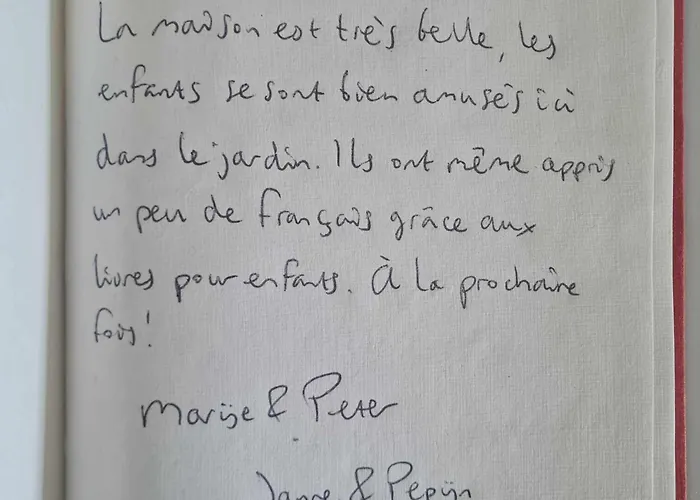 La maison est très belle, les
enfants se sont bien amusés ici
dans le jardin. Ils ont même appris
un peu de français grâce aux
livres pour enfants. À la prochaine
fois!
Marije & Peter
& Pepijn